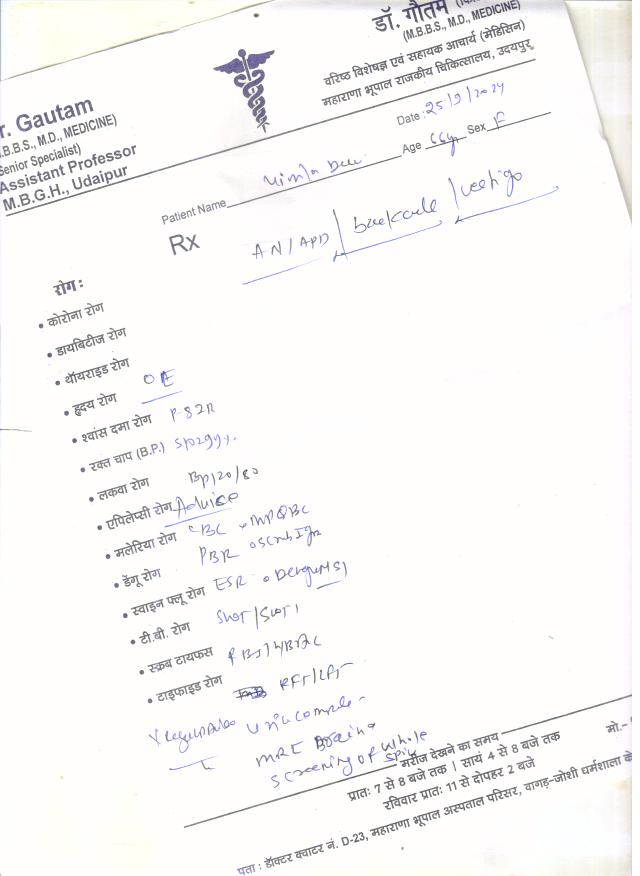 डॉ. गौतम
(M.B.B.S., M.D., MEDICINE)
वरिष्ठ विशेषज्ञ एवं सहायक आचार्य (मेडिसिन)
महाराणा भूपाल राजकीय चिकित्सालय, उदयपुर
r. Gautam
.B.B.S., M.D., MEDICINE)
Senior Specialist)
Assistant Professor
M.B.G.H., Udaipur
Date : 25/9/2024
Patient Name Age 66y Sex F
Rx
AN/APD / backache / vertigo
रोग :
• कोरोना रोग
• डायबिटीज रोग
• थॉयराइड रोग
• हृदय रोग O/E
• श्वांस दमा रोग P-82R
• रक्त चाप (B.P.) SpO2 99%
• लकवा रोग BP 120/80
• एपिलेप्सी रोग Advice
• मलेरिया रोग CBC MPQBC
• डेंगू रोग PBF Scrub IgM
• स्वाइन फ्लू रोग ESR Dengu NS1
• टी.बी. रोग SGOT/SGPT
• स्क्रब टायफस RBS/HBA1C
• टाइफाइड रोग RFT/LFT
Urine complete
MRI Brain
Screening of whole spine
मरीज देखने का समय
प्रातः 7 से 8 बजे तक | सायं 4 से 8 बजे तक
रविवार प्रातः 11 से दोपहर 2 बजे
मो.-
पता : डॉक्टर क्वाटर नं. D-23, महाराणा भूपाल अस्पताल परिसर, वागड़-जोशी धर्मशाला के